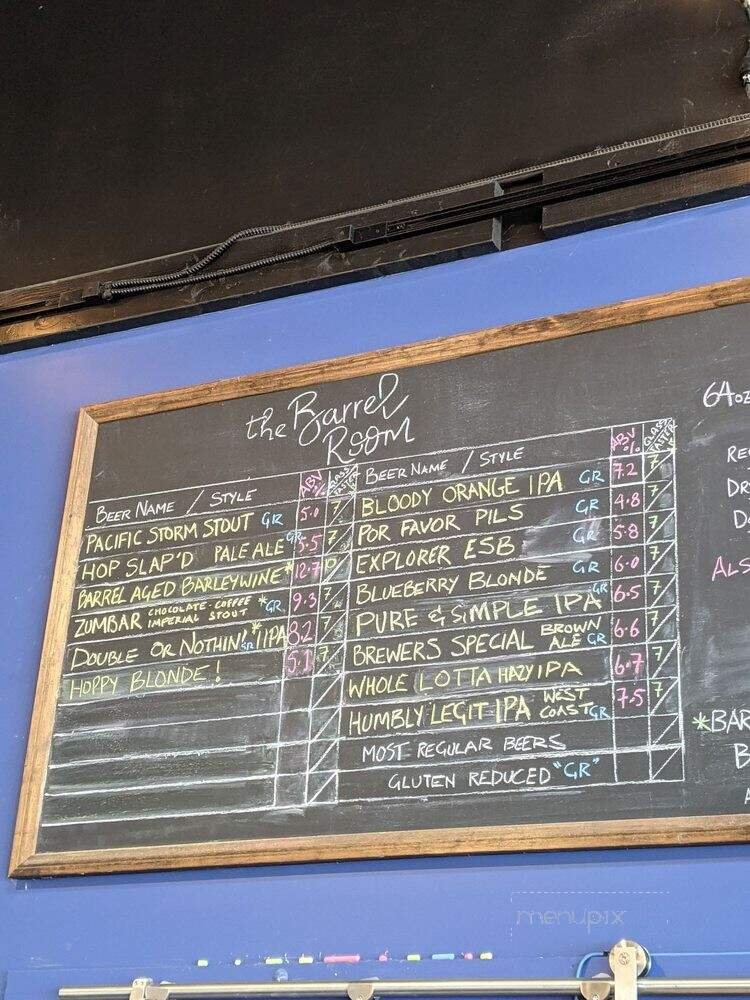 the Barrel
Room
BEER NAME / STYLE ABV %
PACIFIC STORM STOUT GR 5.0 7
HOP SLAP'D PALE ALE GR 5.5 7
BARREL AGED BARLEYWINE* 12.7
ZUMBAR CHOCOLATE-COFFEE IMPERIAL STOUT *GR 9.3 7
DOUBLE OR NOTHIN! * GR IIPA 8.2 7
HOPPY BLONDE! 5.1 7
BEER NAME / STYLE ABV %
BLOODY ORANGE IPA GR 7.2 7
POR FAVOR PILS GR 4.8 7
EXPLORER ESB GR 5.8 7
BLUEBERRY BLONDE GR 6.0 7
PURE & SIMPLE IPA GR 6.5 7
BREWERS SPECIAL BROWN ALE GR 6.6 7
WHOLE LOTTA HAZY IPA 6.7 7
HUMBLY LEGIT IPA WEST COAST GR 7.5 7
MOST REGULAR BEERS
GLUTEN REDUCED "GR"
64oz
ALS
*BAR
B
menupix